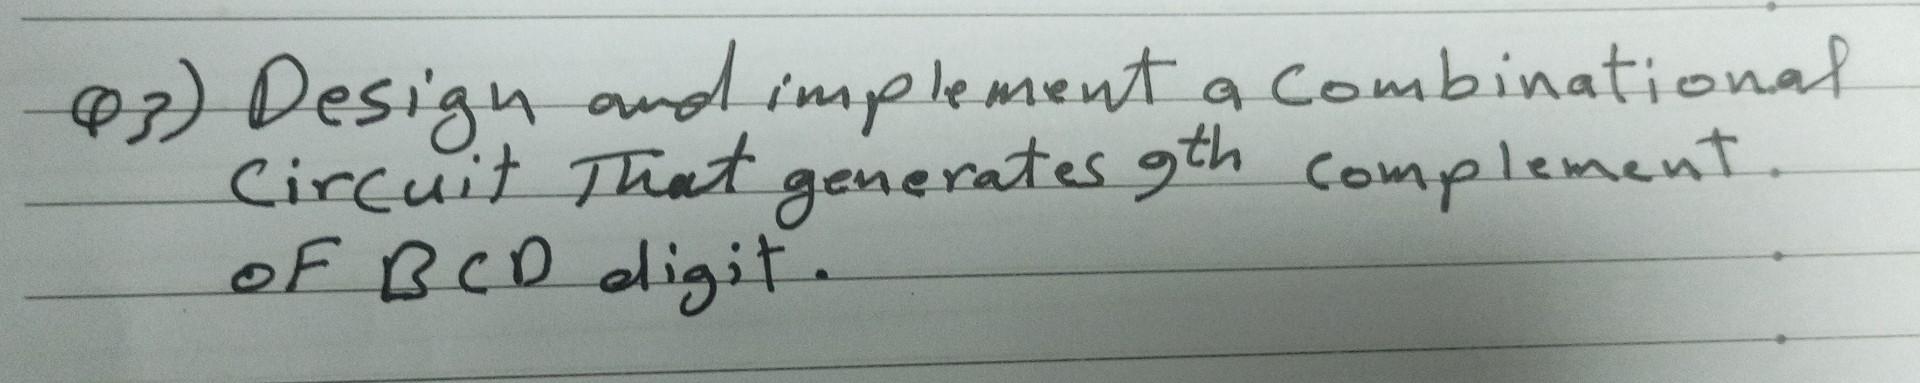 Q3) Design and implement a Combinational
Circuit That generates 9th complement.
OF BCD digit.